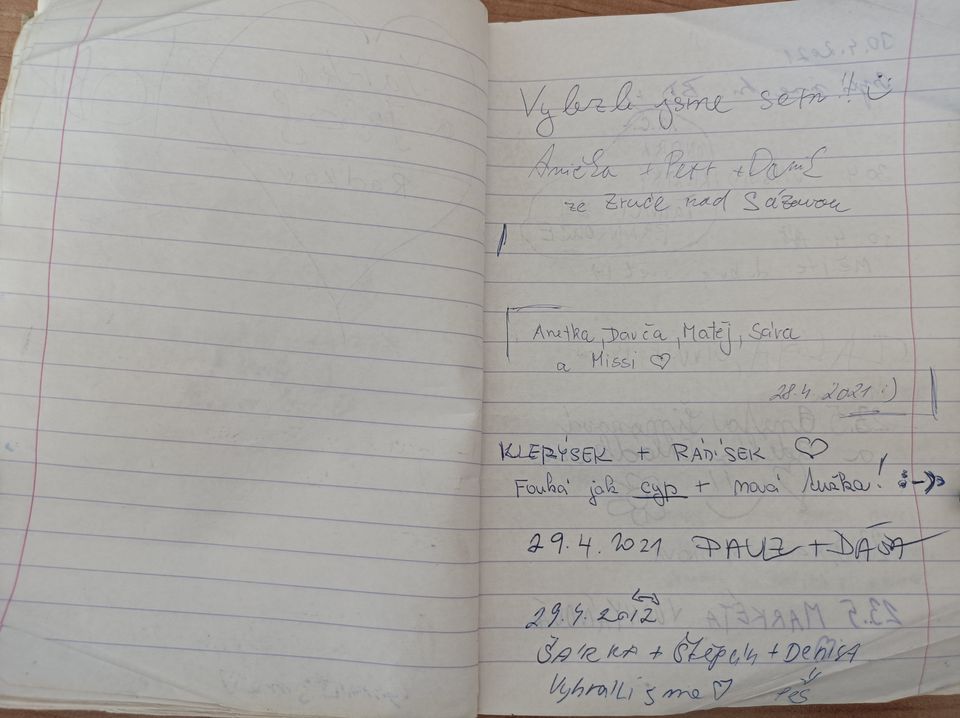 Vylezli jsme sem!! :)
Anička + Petr + David
ze Zruče nad Sázavou
Anetka, Davča, Matěj, Sára
a Missi ♡
28.4 2021 :)
KLEPÝSEK + RÁDÍSEK ♡
Fouká jak cyp + nová tužka!
29.4.2021 PAVLZ + DÁŠA
29.4.2012
ŠÁRKA + Štěpán + DENISA
Vyhráli jsme ♡ Pěš
23.5 MARKÉTA
30.4.2021